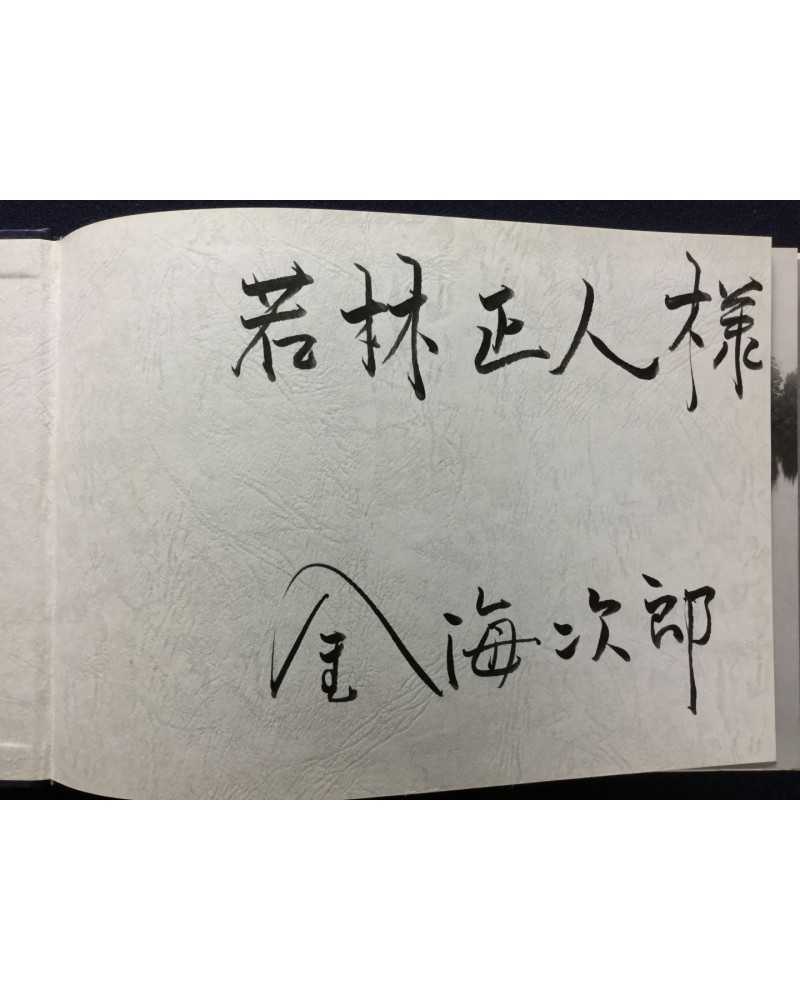 若林正人様
金海次郎